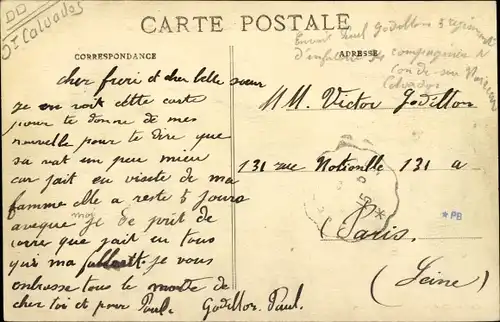 Dt Calvados
CARTE POSTALE
CORRESPONDANCE
ADRESSE
Envoi Paul Godillon 3 regiment
d'enfanterie compagnie
Condé sur Noireau
Calvados
cher freri et cher belle soeur
je en voit cette carte
pour te donne de mes
nouvelle pour te dire que
sa vat un peu mieu
car jait eu visite de ma
famme elle a reste 5 jours
aveque moi je de prit de
que jait eu tous
qui ma je vous
enbrasse tous le monde de
cher toi et pour Paul. Godillon Paul.
MM. Victor Godillon
131 rue Nationale 131 a
Paris.
(Seine)
*PB